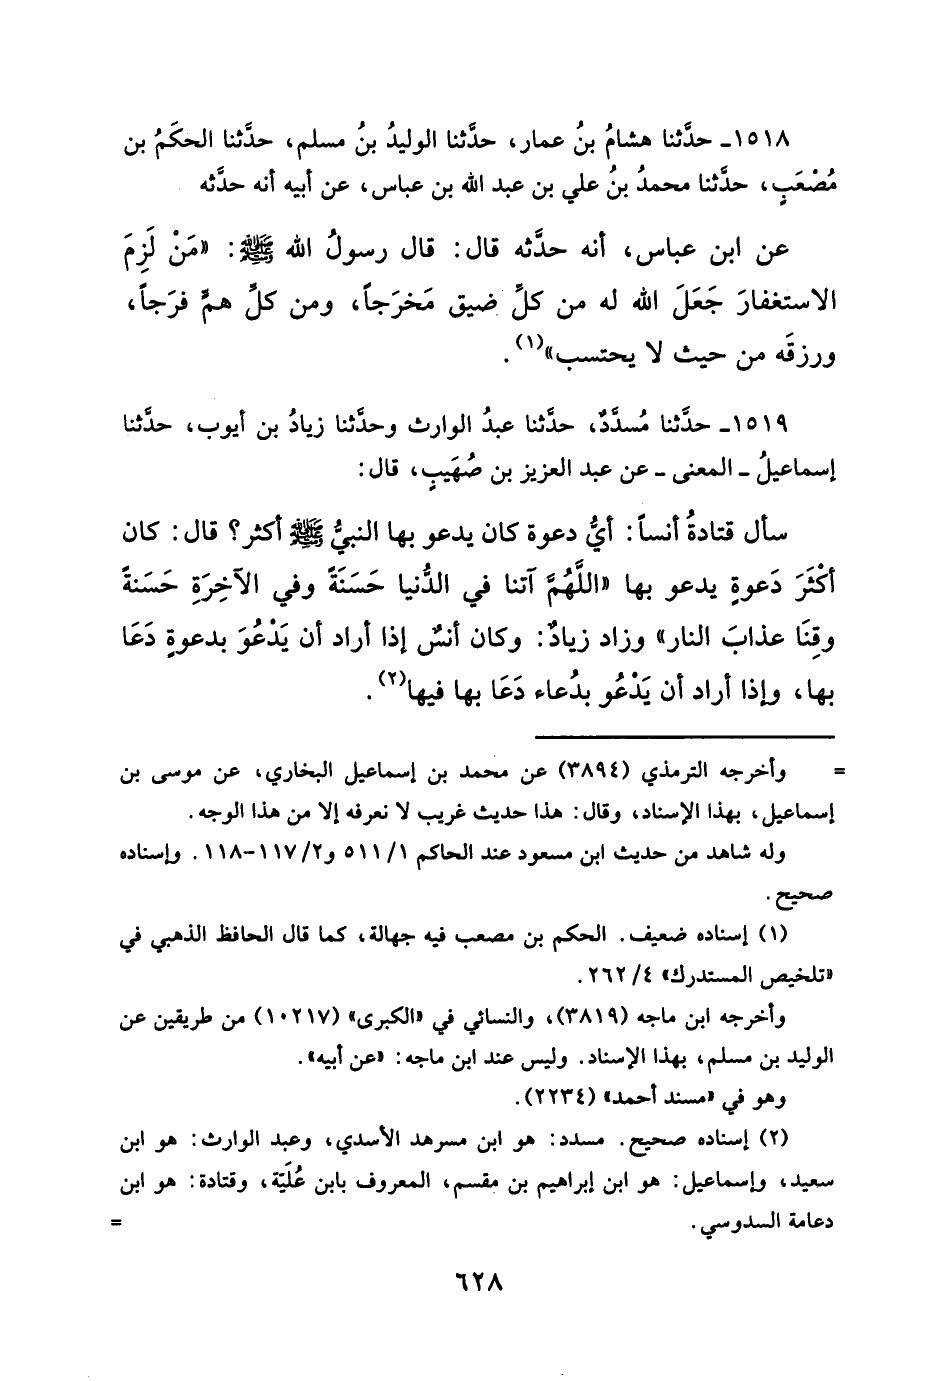 ١٥١٨ـ حدَّثنا هشامُ بنُ عمار، حدَّثنا الوليدُ بنُ مسلم، حدَّثنا الحكَمُ بن
مُصْعَبٍ، حدَّثنا محمدُ بنُ علي بن عبد الله بن عباس، عن أبيه أنه حدَّثه
عن ابن عباس، أنه حدَّثه قال: قال رسولُ الله ﷺ: «مَنْ لَزِمَ
الاستغفارَ جَعَلَ الله له من كلِّ ضيق مَخرَجاً، ومن كلِّ همٍّ فرَجاً،
ورزقَه من حيث لا يحتسب»(١).
١٥١٩ـ حدَّثنا مُسدَّدٌ، حدَّثنا عبدُ الوارث وحدَّثنا زيادُ بن أيوب، حدَّثنا
إسماعيلُ ـ المعنى ـ عن عبد العزيز بن صُهَيبٍ، قال:
سأل قتادةُ أنساً: أيُّ دعوة كان يدعو بها النبيُّ ﷺ أكثر؟ قال: كان
أكْثَرَ دَعوةٍ يدعو بها «اللَّهُمَّ آتنا في الدُّنيا حَسَنَةً وفي الآخِرَةِ حَسَنةً
وقِنَا عذابَ النار» وزاد زيادٌ: وكان أنسٌ إذا أراد أن يَدْعُوَ بدعوةٍ دَعَا
بها، وإذا أراد أن يَدْعُو بدُعاء دَعَا بها فيها(٢).
= وأخرجه الترمذي (٣٨٩٤) عن محمد بن إسماعيل البخاري، عن موسى بن
إسماعيل، بهذا الإسناد، وقال: هذا حديث غريب لا نعرفه إلا من هذا الوجه.
وله شاهد من حديث ابن مسعود عند الحاكم ٥١١/١ و١١٧/٢-١١٨. وإسناده
صحيح.
(١) إسناده ضعيف. الحكم بن مصعب فيه جهالة، كما قال الحافظ الذهبي في
«تلخيص المستدرك» ٢٦٢/٤.
وأخرجه ابن ماجه (٣٨١٩)، والنسائي في «الكبرى» (١٠٢١٧) من طريقين عن
الوليد بن مسلم، بهذا الإسناد. وليس عند ابن ماجه: «عن أبيه».
وهو في «مسند أحمد» (٢٢٣٤).
(٢) إسناده صحيح. مسدد: هو ابن مسرهد الأسدي، وعبد الوارث: هو ابن
سعيد، وإسماعيل: هو ابن إبراهيم بن مقسم، المعروف بابن عُلَيّة، وقتادة: هو ابن
دعامة السدوسي. =
٦٢٨